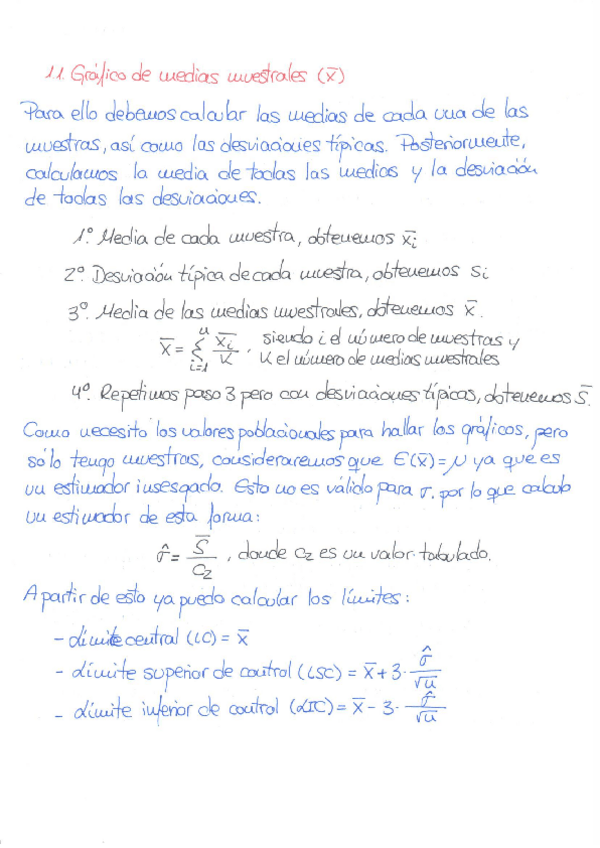 1.1. Gráfico de medias muestrales (x̄)
Para ello debemos calcular las medias de cada una de las
muestras, así como las desviaciones típicas. Posteriormente,
calculamos la media de todas las medias y la desviación
de todas las desviaciones.
1º. Media de cada muestra, obtenemos x̄i
2º. Desviación típica de cada muestra, obtenemos si
3º. Media de las medias muestrales, obtenemos x̄.
x̄ = Σ_{i=1}^{n} x̄i/K, siendo i el número de muestras y
K el número de medias muestrales
4º. Repetimos paso 3 pero con desviaciones típicas, obtenemos s̄.
Como necesito los valores poblacionales para hallar los gráficos, pero
sólo tengo muestras, consideraremos que E(x̄)=μ ya que es
un estimador insesgado. Esto no es válido para σ, por lo que calculo
un estimador de esta forma:
σ̂ = s̄/c₂, donde c₂ es un valor tabulado.
A partir de esto ya puedo calcular los límites:
- Límite central (LC) = x̄
- Límite superior de control (LSC) = x̄ + 3 · σ̂/√n
- Límite inferior de control (LIC) = x̄ - 3 · σ̂/√n